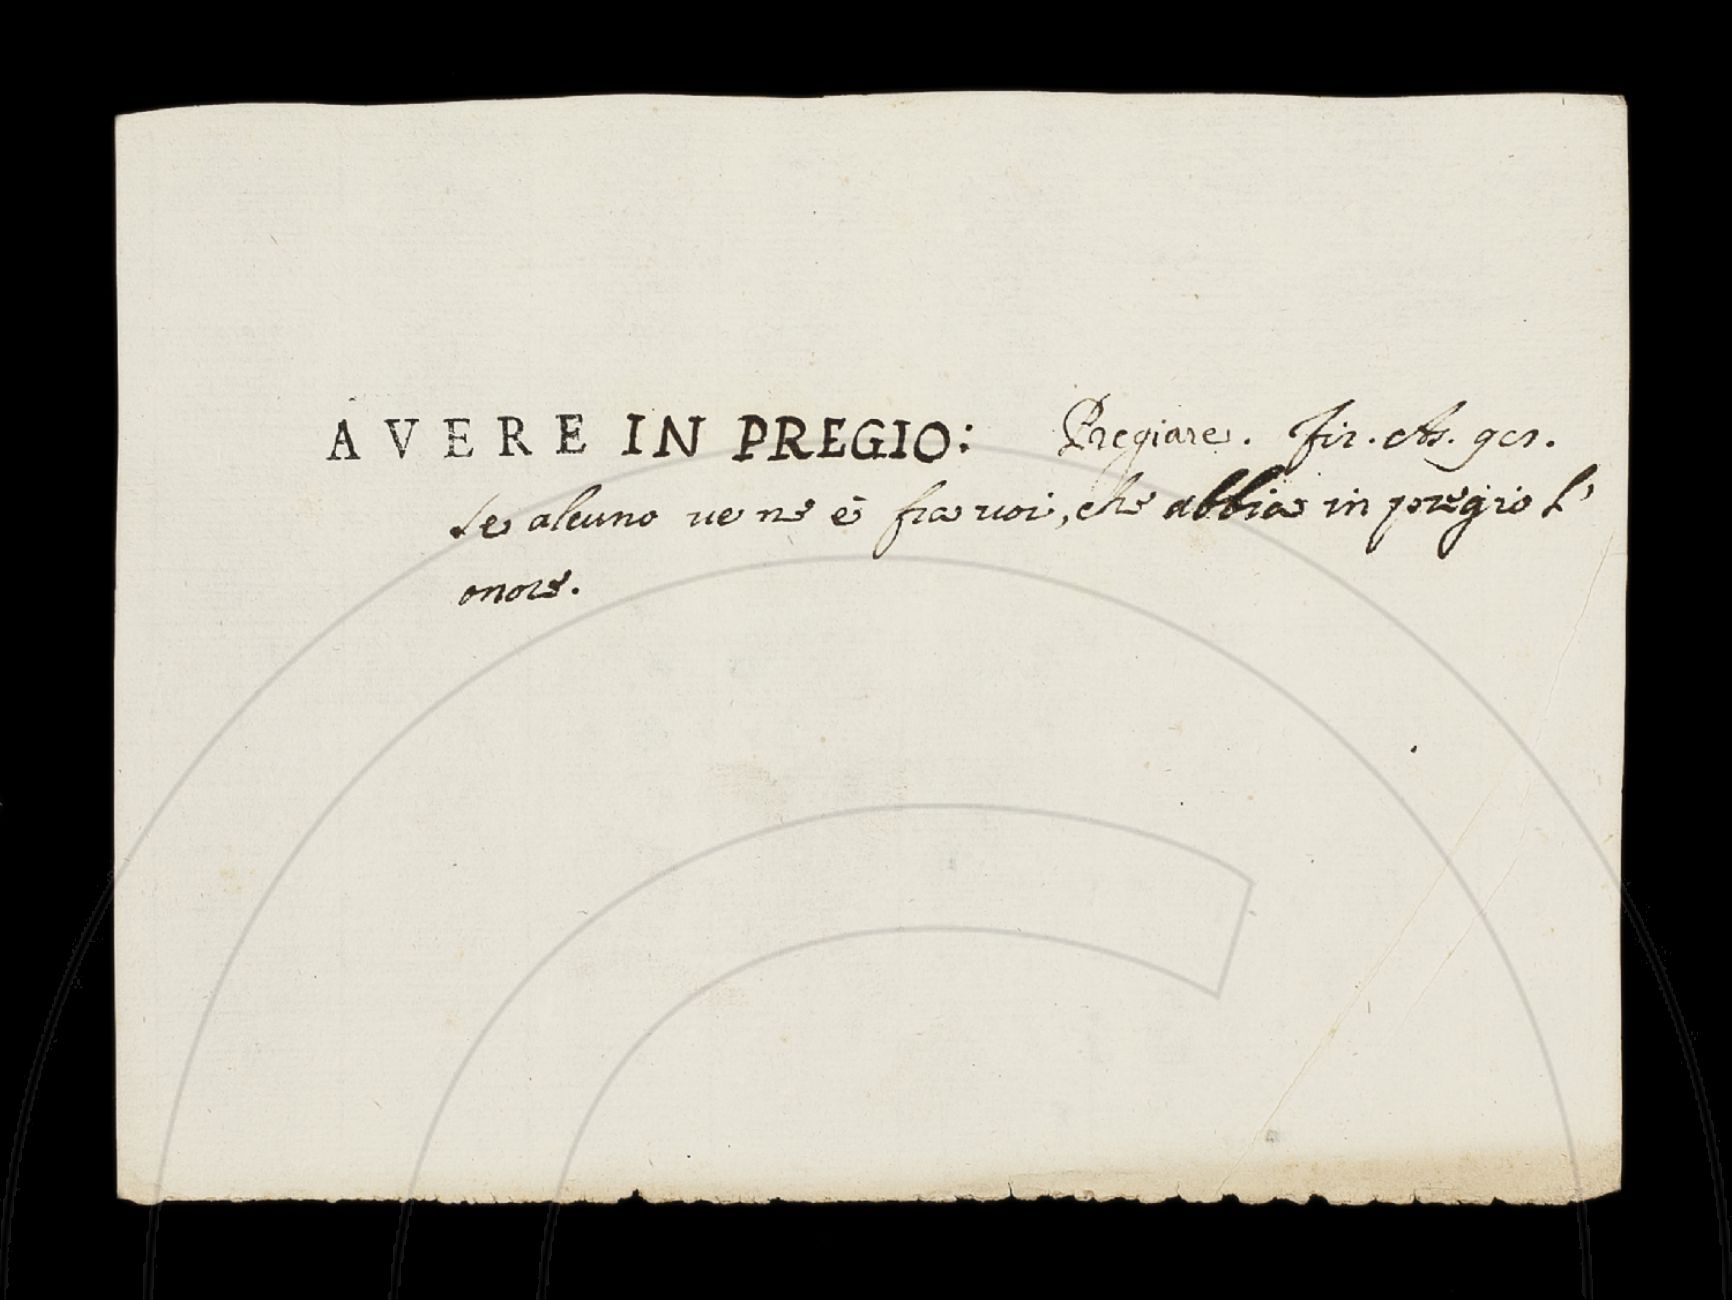 AVERE IN PREGIO: Pregiare. Fir. As. ger.
se alcuno ve ne è fra voi, che abbia in pregio l'
onore.